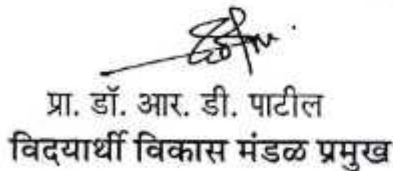 प्रा. डॉ. आर. डी. पाटील
विदयार्थी विकास मंडळ प्रमुख